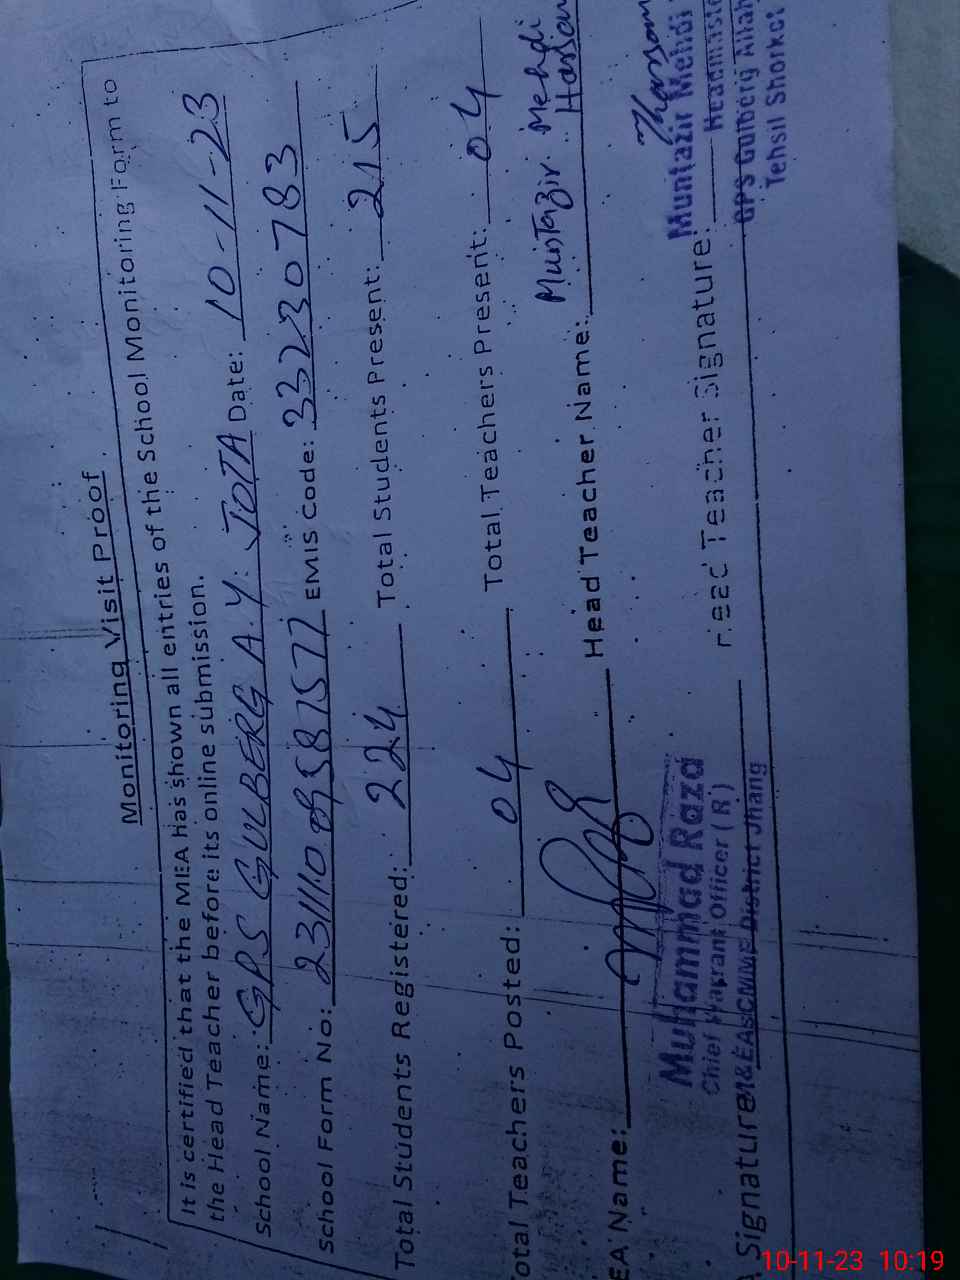 Monitoring Visit Proof
It is certified that the MEA has shown all entries of the School Monitoring Form to
the Head Teacher before its online submission.
School Name: GPS GULBERG A.Y. JOTA Date: 10-11-23
School Form No: EMIS Code: 33230783
Total Students Registered: 224 Total Students Present: 215
Total Teachers Posted: 04 Total Teachers Present: 04
EA Name: Head Teacher Name: Muntazir Mehdi Hassan
Muhammad Raza
Chief Warrant Officer (R)
Signature M&EAs CMMF District Jhang
Head Teacher Signature:
Muntazir Mehdi
Headmaste
GPS Gulberg Allah
Tehsil Shorkot
10-11-23 10:19